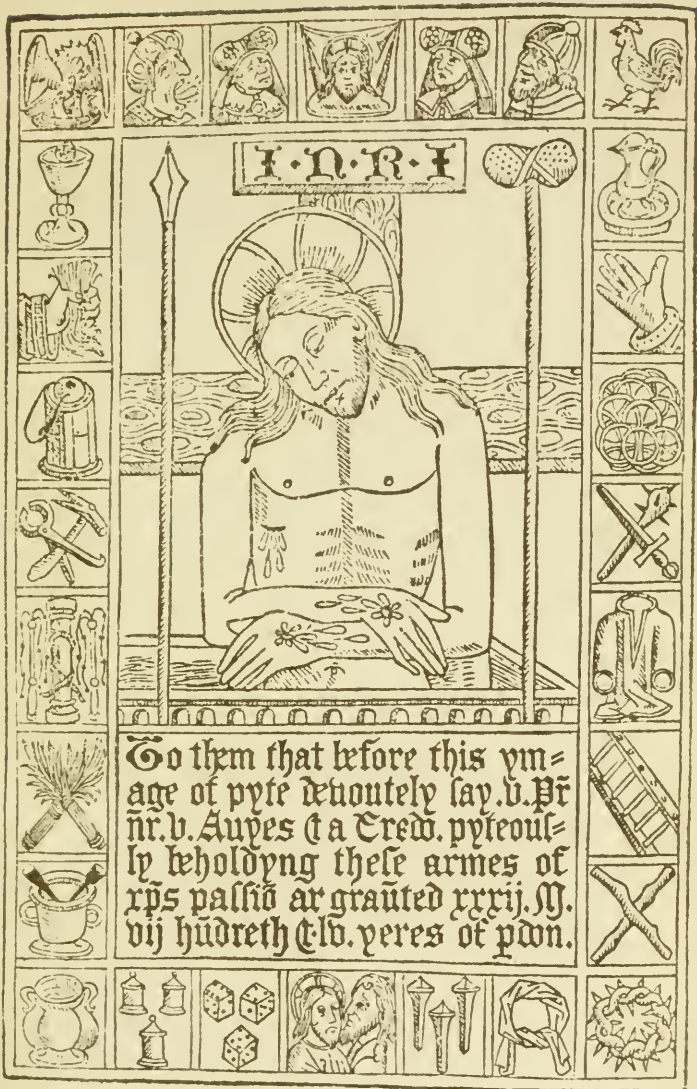 I·N·R·I
To them that before this ym=
age of pyte deuoutely say .v. Pr̄
nr̄. v. Auyes ⁊ a Credo. pyteouſ=
ly beholdyng theſe armes of
xp̄s paſſiō ar graūted xxxij. M.
vij hūdreth ⁊ lv. yeres of pdon.